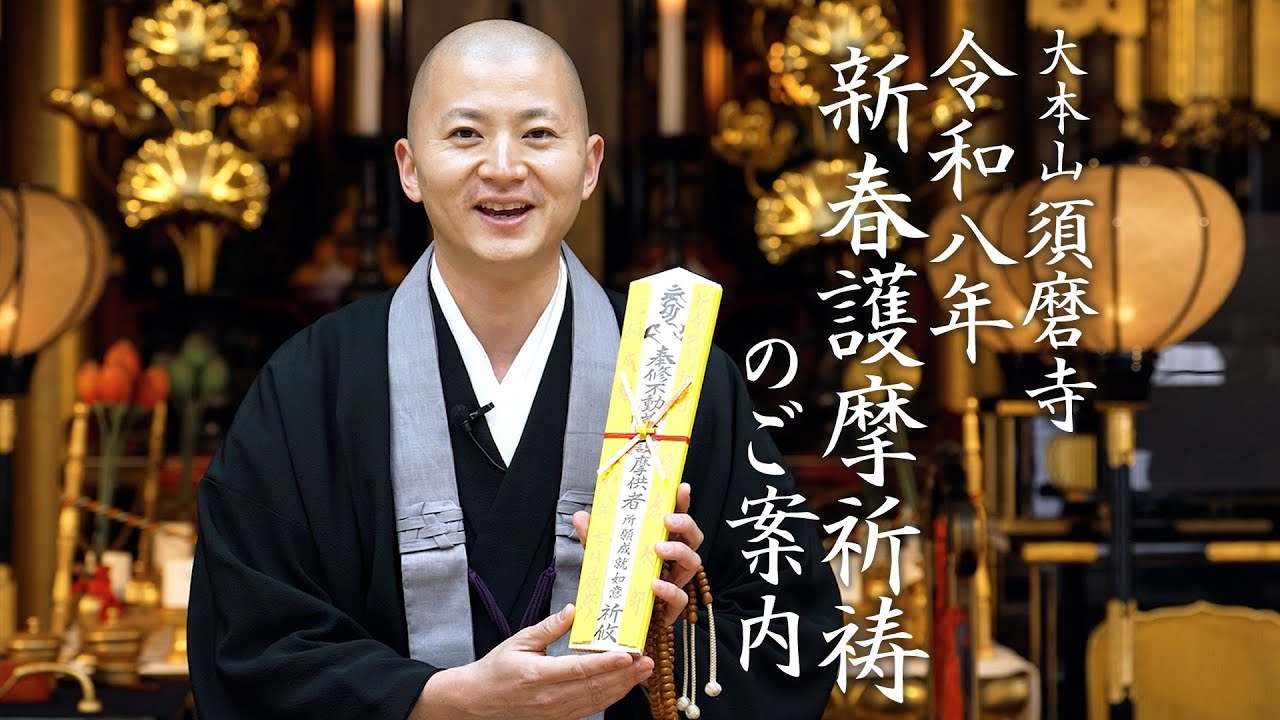 大本山須磨寺
令和八年
新春護摩祈祷
のご案内
奉修不動
護摩供者
所願成就如意
祈攸